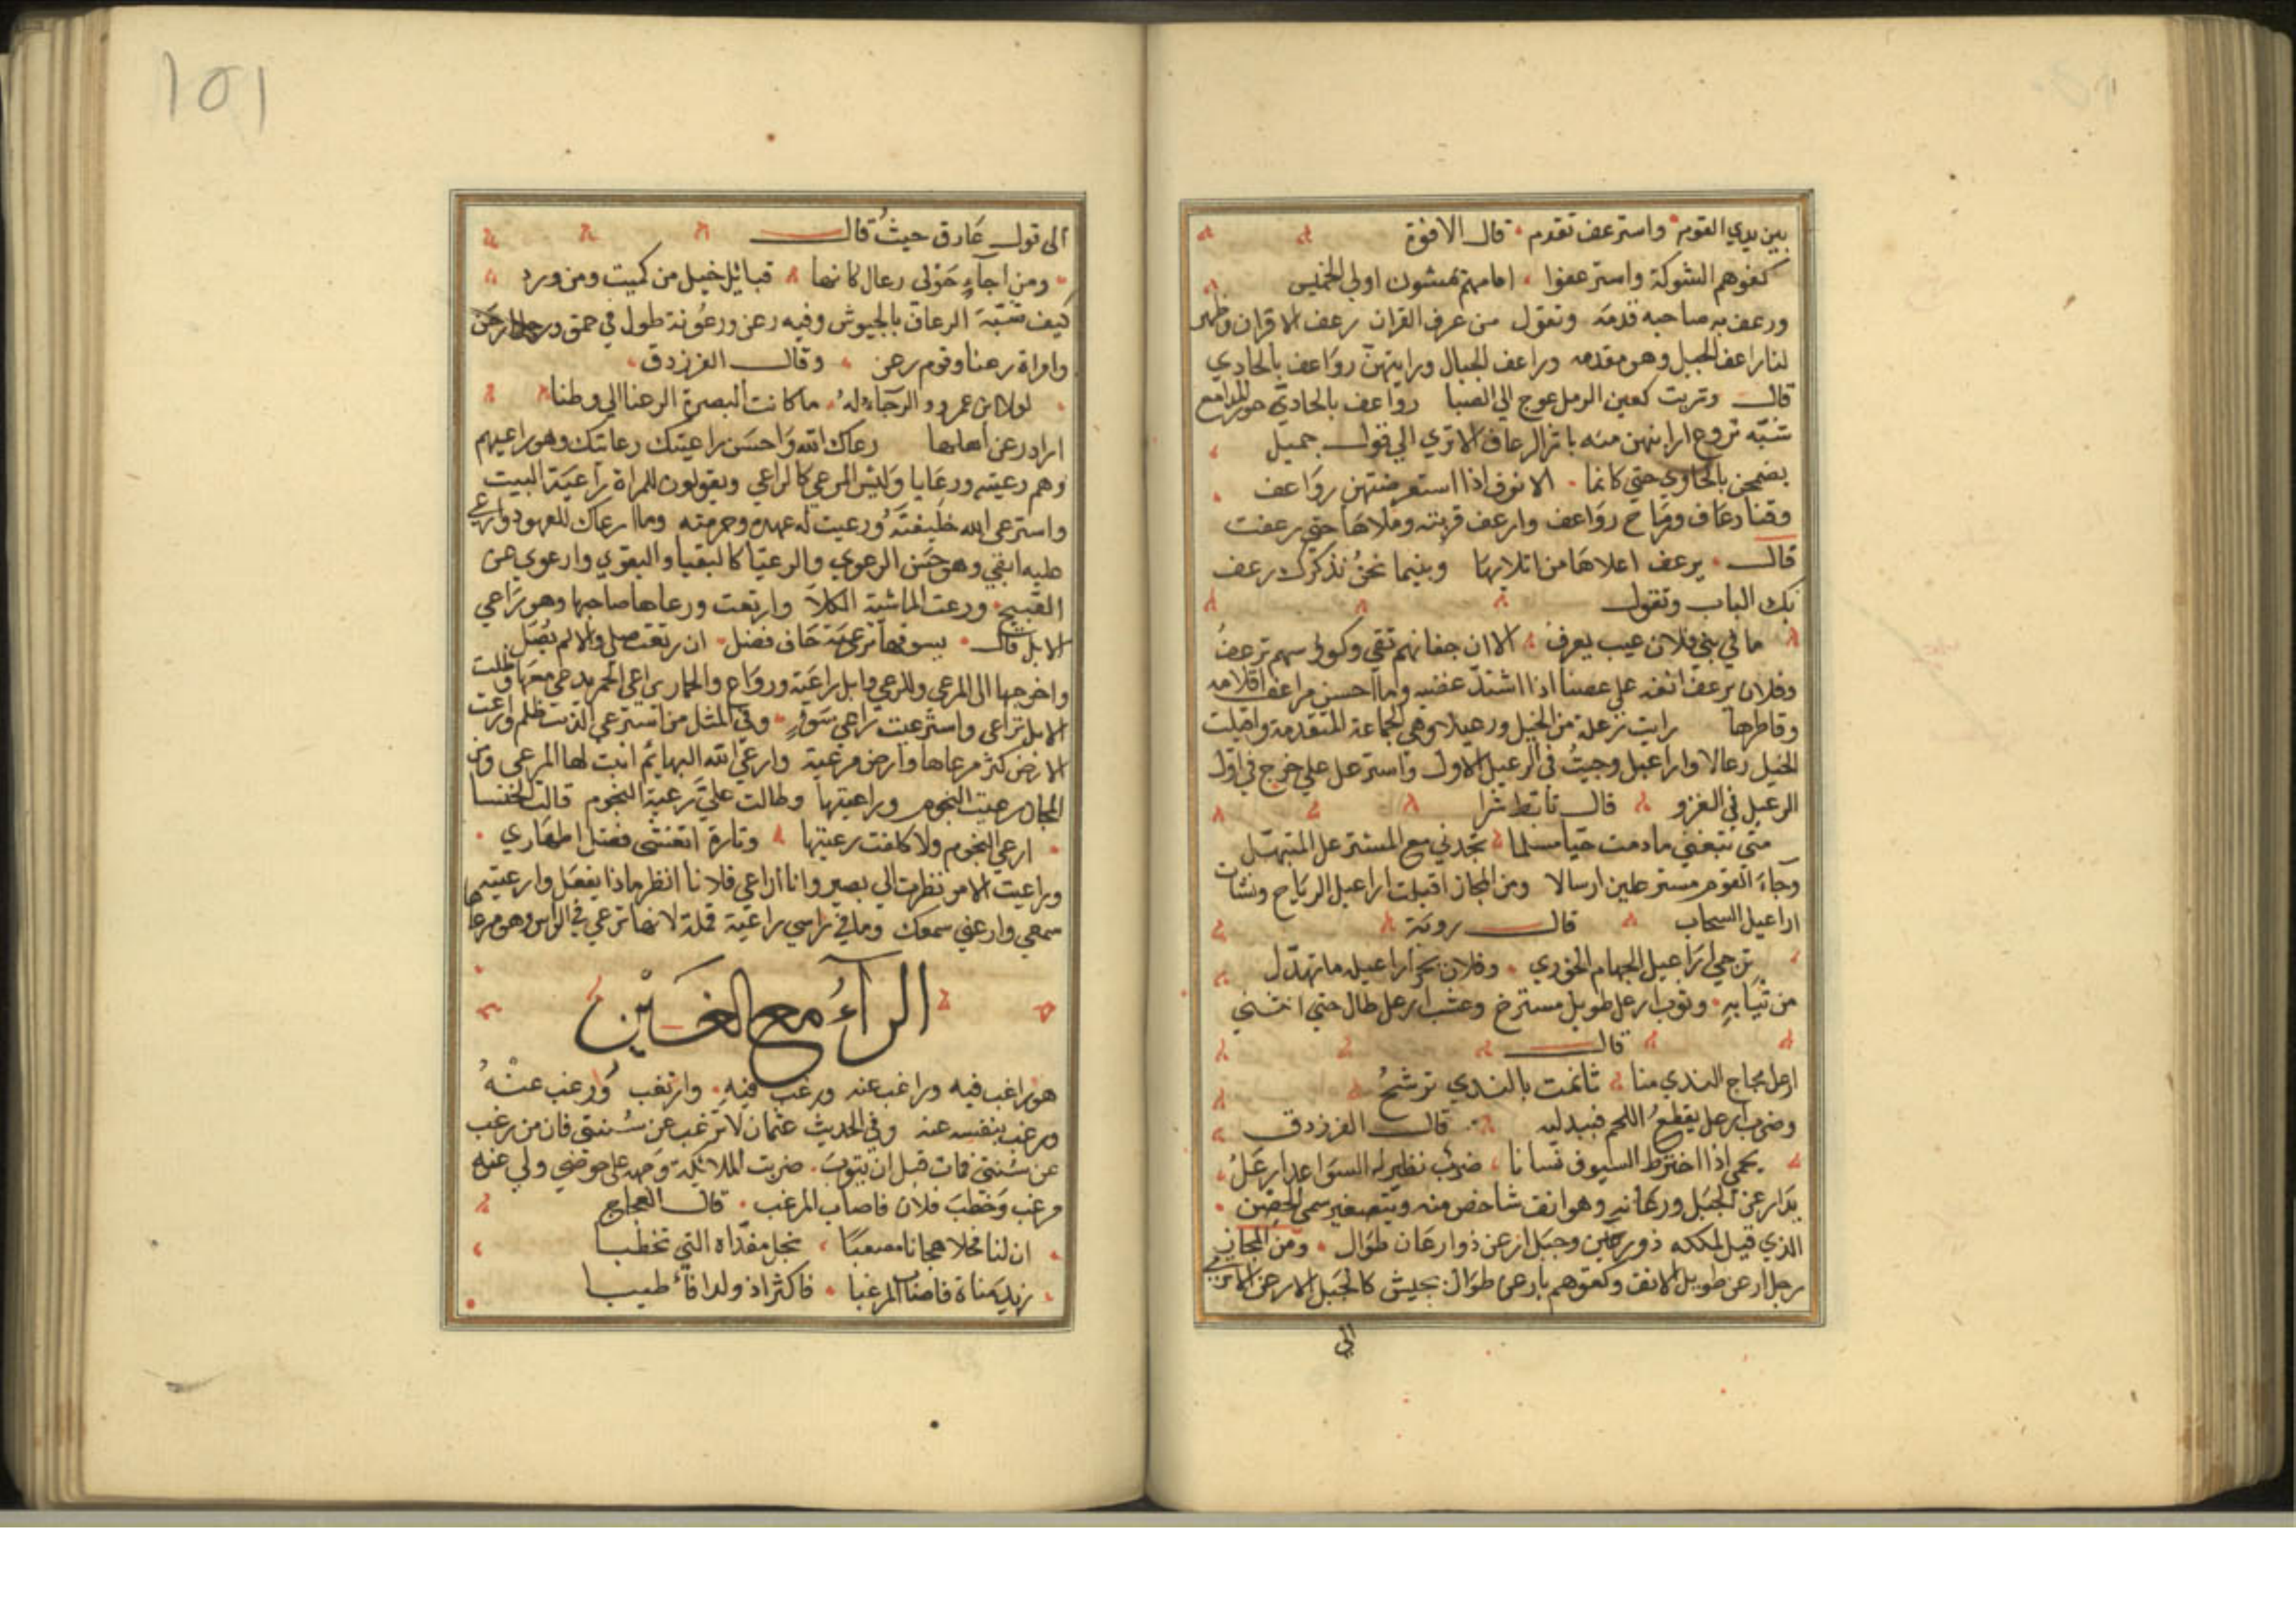 بين يدي القوم واسترعف تقدم قال الافوة
كفوهم الشوكة واسترعفوا امامهم تمشون اولي الخميس
ورعف به صاحبه قدمه وتقول من عرف القران رعف الاقران وظهر
لنا راعف الجبل وهو مقدمه وراعف الجبال ورايتهن رواعف بالجادي
قال وتربت كعين الرمل عوج الى الصبا رواعف بالجادي حور المدامع
شبه تروع ارابنهن منه باثر الرعاف الا تري الي قول جميل
يضمخن بالجاوي حتي كانما الانوف اذا استعرضتهن رواعف
وقنا رعاف ورماح رواعف وارعف قربته وملاها حتي رعفت
قال يرعف اعلاها من اتلابها وبينما نحن نذكرك رعف
بك الباب وتقول
ما في بني فلان عيب يعرف الا ان جفانهم تقي وكوليسهم ترعف
وفلان يرعف انفه علي عصبنا اذا اشتد غضبه وما احسن مراعف اقلامه
وقاطرها رايت رعلة من الخيل ورعيلا وهي الجماعة المتقدمة واقبلت
الخيل رعالا واراعيل وجيت في الرعيل الاول واسترعل علي خرج في اول
الرعيل في الغزو قال تابط شرا
متي تبغني ما دمت حيا مسلما تجدني مع المسترعل المتبهل
وجاء القوم مسترعلين ارسالا ومن المجاز اقبلت اراعيل الرياح ونشات
اراعيل السحاب قال روبة
تزجي اراعيل الجهام الخوري وفلان يجر اراعيله ما تهدل
من ثيابه وثوب ارعل طويل مسترخ وعشب ارعل طال حتي انثني
قال
ارعل مجاج الندي منا ثا نمت بالندي ترشح
وضرب ارعل يقطع اللحم فيدليه قال الفرزدق
يحمي اذا اخترط السيوف نسانا ضرب تطير له السواعد ارعل
بدا رعن الجبل ورعانه وهو انف شاخص منه وبتصغيره سمي الحصن
الذي قيل لملكه ذو رعين وجبل ارعن ذو ارعان طوال ومن المجاز
رجل ارعن طويل الانف وكعوهم بارعن طوال بجيش كالجبل الارعن الا تري
الي
١٥١
الى قول عارق حيث قال
ومن اجاء حولى رعال كانها قبائل خيل من كميت ومن ورد
كيف شبه الرعان بالجيوش وفيه رعن ورعونة طول في حمق ورجل ارعن
وامراة رعنا وقوم رعن وقال الفرزدق
لولا بن عمرو والرجاء له ما كانت البصرة الرعنا لي وطنا
اراد رعن اهلها رعاك الله واحسن راعيتك رعايتك وهو راعيهم
وهم رعيته ورعايا وليس المرعي كالراعي ويقولون للمراة راعية البيت
واسترعى الله خليفته ورعيت له عهده وحرمته وما ارعاك للعهود وارعي
عليه ابقي وهو حسن الرعوي والرعيا كالبقيا والبقوي وارعوي عن
القبيح ورعت الماشية الكلا وارتعت ورعاها صاحبها وهو تراعي
الابل قال يسوقها ترعية خاف فضل ان رتعت صلي والا لم يصل
واخرجها الى المرعى وللرعي وابل راعية ورواع والحمار يراعي الحمر يدعي معها وظلت
الابل تراعى واسترعت راعي سوء وفي المثل من استرعى الذئب ظلم وارعت
الارض كثر مرعاها وارض مرعية وارعى الله البهائم انبت لها المرعى ومن
المجاز رعيت النجوم وراعيتها وطالت علي رعية النجوم قالت الخنسا
ارعى النجوم ولا كلفت رعيتها وتارة اتغشى فضل اطماري
وراعيت الامر نظرت الي يصير وانا اراعي فلانا انظر ماذا يفعل وارعيته
سمعي وارعني سمعك وما في راسي راعية قملة لانها ترعي في الراس وهو مرعاها
الراء مع الغين
هو راغب فيه وراغب عنه ورغب فيه وارتغب ورغب عنه
ورغب بنفسه عنه وفي الحديث عثمان لا ترغب عن سنتي فان من رغب
عن سنتي فمات قبل ان يتوب ضربت الملائكة وجهه على حوضي ولي عنه
مرغب وخطب فلان فاصاب المرغب قال العجاج
ان لنا فحلا هجانا مصعبا نجل مفداة التي تخطبا
زيد مناة فاصاب المرغبا فاكثرا ذ ولدا فأطيبا